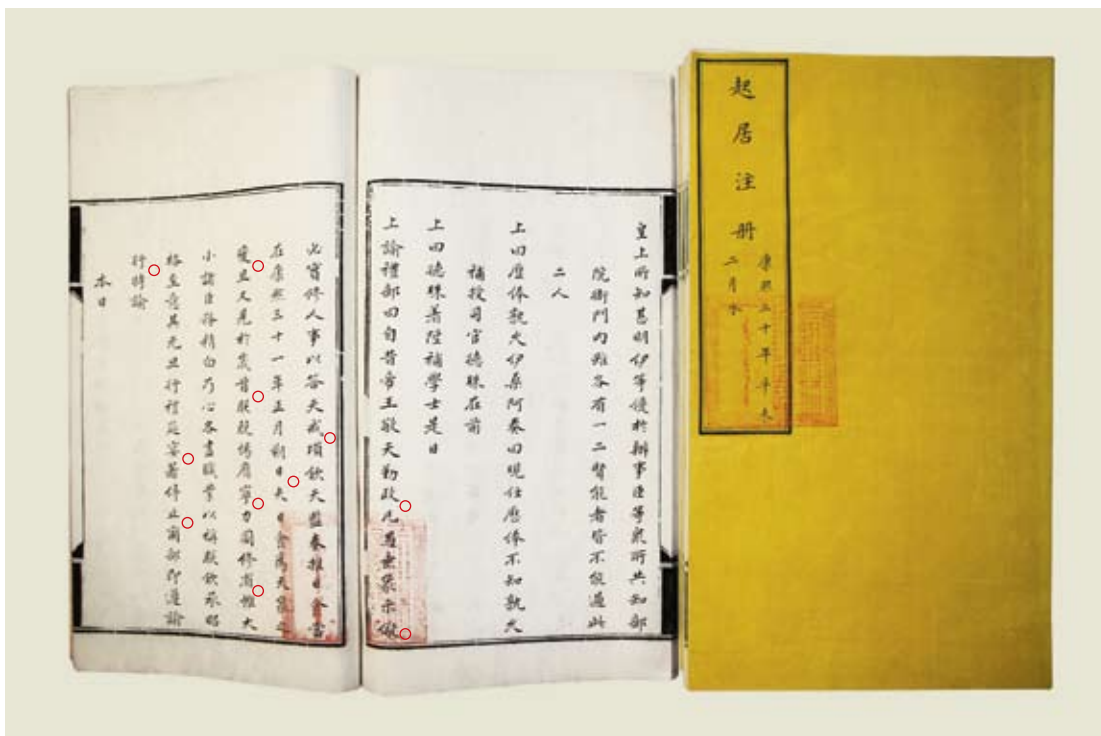 起居注冊
康熙三十年辛未
二月
皇上所知甚明伊等優於辦事臣等衆所共知部
院衙門內雖各有一二賢能者皆不能過此
二人
上曰歷俸孰久伊桑阿奏曰現任歷俸不知孰久
補授司官德珠在前
上曰德珠著陞補學士是日
上諭禮部曰自昔帝王敬天勤政凡遇垂象示儆
必實修人事以答天戒頃欽天監奏推日食當
在康熙三十一年正月朔日夫日食爲天象之
變且又見於歲首朕兢惕靡寧力圖修省惟大
小諸臣務精白乃心各盡職業以稱朕欽承昭
格至意其元旦行禮筵宴著停止爾部即遵諭
行特諭
本日